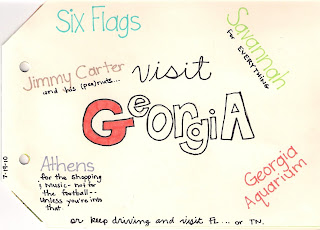 Six Flags
Savannah
for EVERYTHING
Jimmy Carter
and his (pea)nuts...
visit
GeorgiA
Athens
for the shopping
& music - not for
the football --
Unless you're into
that
Georgia
Aquarium
7-19-10
or keep driving and visit FL ... or TN.